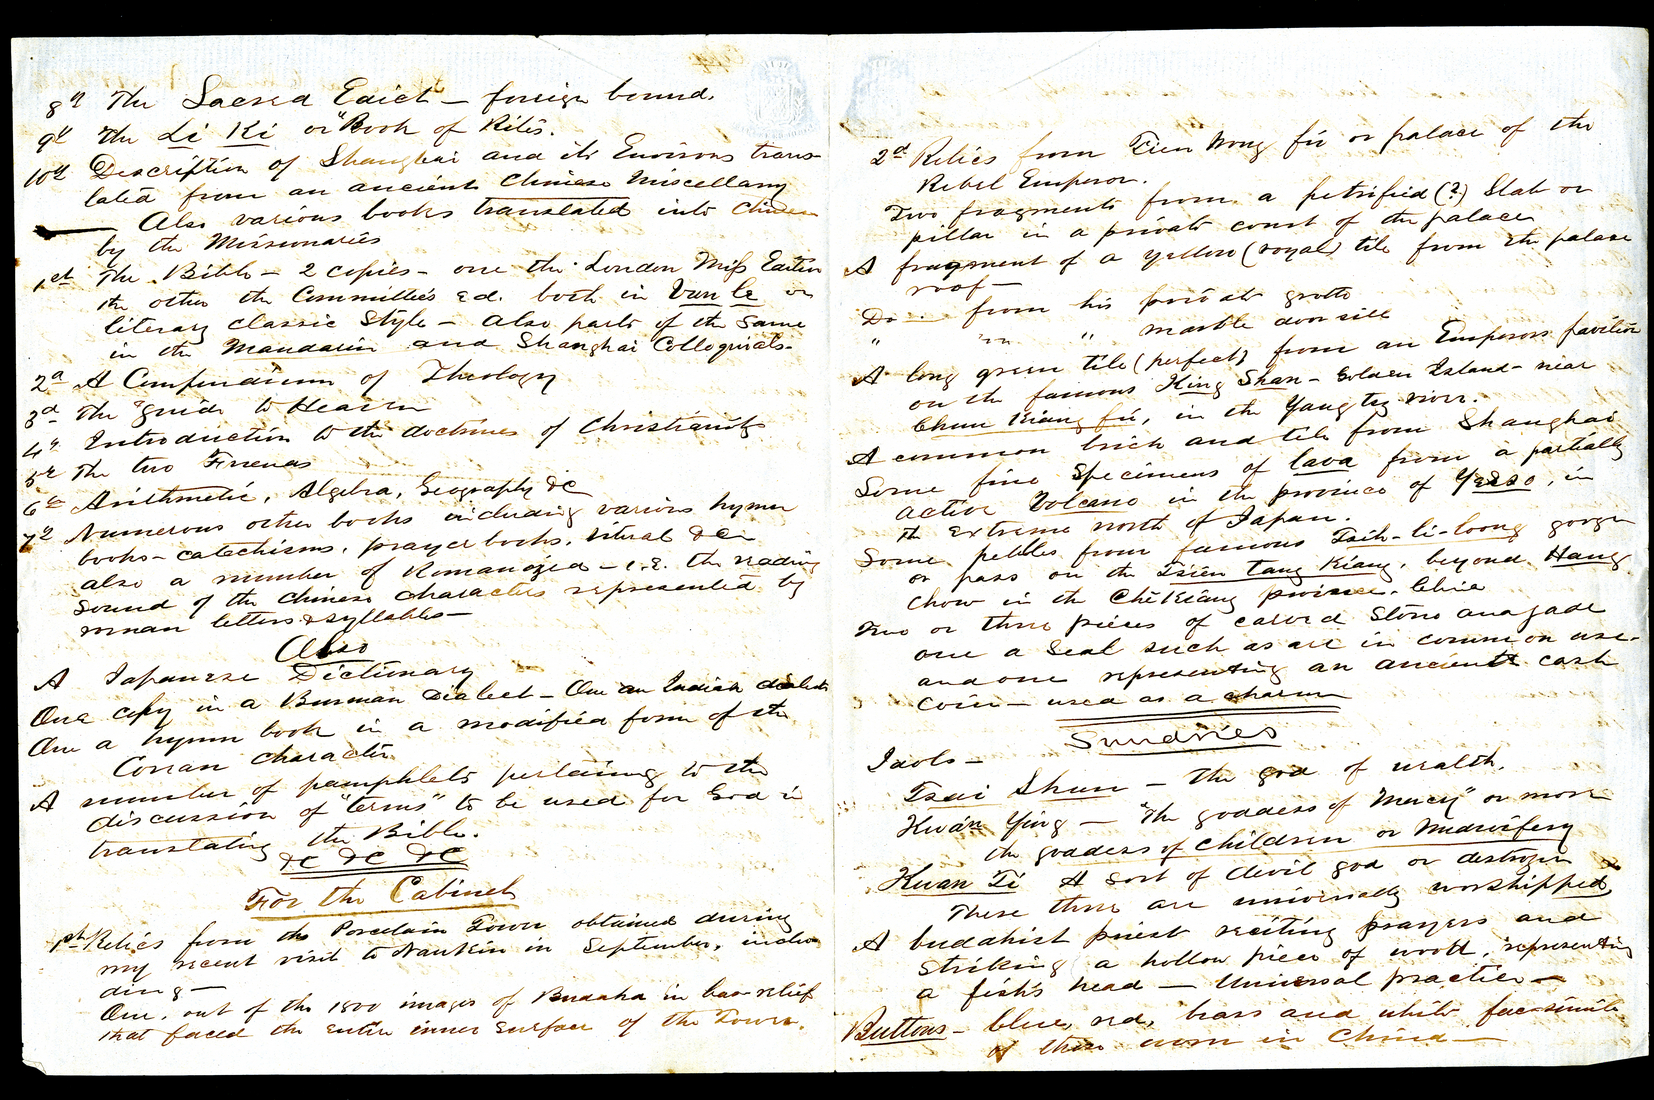 8th The Sacred Edict — foreign bound.
9th The Li Ki or "Book of Rites.
10th Description of Shanghai and its Environs trans-
lated from an ancient Chinese Miscellany
Also various books translated into Chinese
by the Missionaries
1st The Bible — 2 copies — one the London Miss Edition
the other the Committee's ed. both in Van Le or
literary classic style — also parts of the same
in the Mandarin and Shanghai Colloquials.
2d A Compendium of Theology
3d The "guide to Heaven
4th Introduction to the doctrines of Christianity
5th The two Friends
6th Arithmetic, Algebra, Geography &c
7th Numerous other books including various hymn
books — catechisms, prayer books, ritual &c
also a number of Romanized — i.e. the reading
sound of the Chinese characters represented by
roman letters & syllables —
Also
A Japanese Dictionary
One copy in a Burman Dialect — One an Indian dialect
One a hymn book in a modified form of the
Corean character
A number of pamphlets pertaining to the
discussion of "terms" to be used for God in
translating the Bible.
&c &c &c
For the Cabinet
1st Relics from the Porcelain Tower obtained during
my recent visit to Nankin in September, inclu
ding —
One, out of the 1800 images of Buddha in bas-relief
that faced the entire inner surface of the Tower.
2d Relics from Tien Wong fu or palace of the
Rebel Emperor.
Two fragments from a petrified (?) Slab or
pillar in a private court of the palace
A fragment of a yellow (royal) tile from the palace
roof —
Do from his private grotto
" " " marble door sill
A long green tile (perfect) from an Emperors pavilion
on the famous King Shan — Golden Island — near
Chun Kiang fu, in the Yang tsz river.
A common brick and tile from Shanghai
Some fine specimens of lava from a partially
active Volcano in the province of Yesso, in
the extreme north of Japan.
Some pebbles from famous Tsih-li-loong gorge
or pass on the Tsien Tang Kiang, beyond Hang
chow in the Chekiang province, China
Two or three pieces of carved stone and jade
one a seal such as are in common use.
and one representing an ancient cash
coin — used as a charm
Sundries
Idols —
Tsai Shun — The god of wealth.
Kwan Ying — "The goddess of "Mercy" or more
the goddess of children or Midwifery
Kwan Ti A sort of devil god or destroyer
These three are universally worshipped
A buddhist priest reciting prayers and
striking a hollow piece of wood, representing
a fish's head — Universal practice —
Buttons — blue, red, brass and white facsimile
of those worn in China —